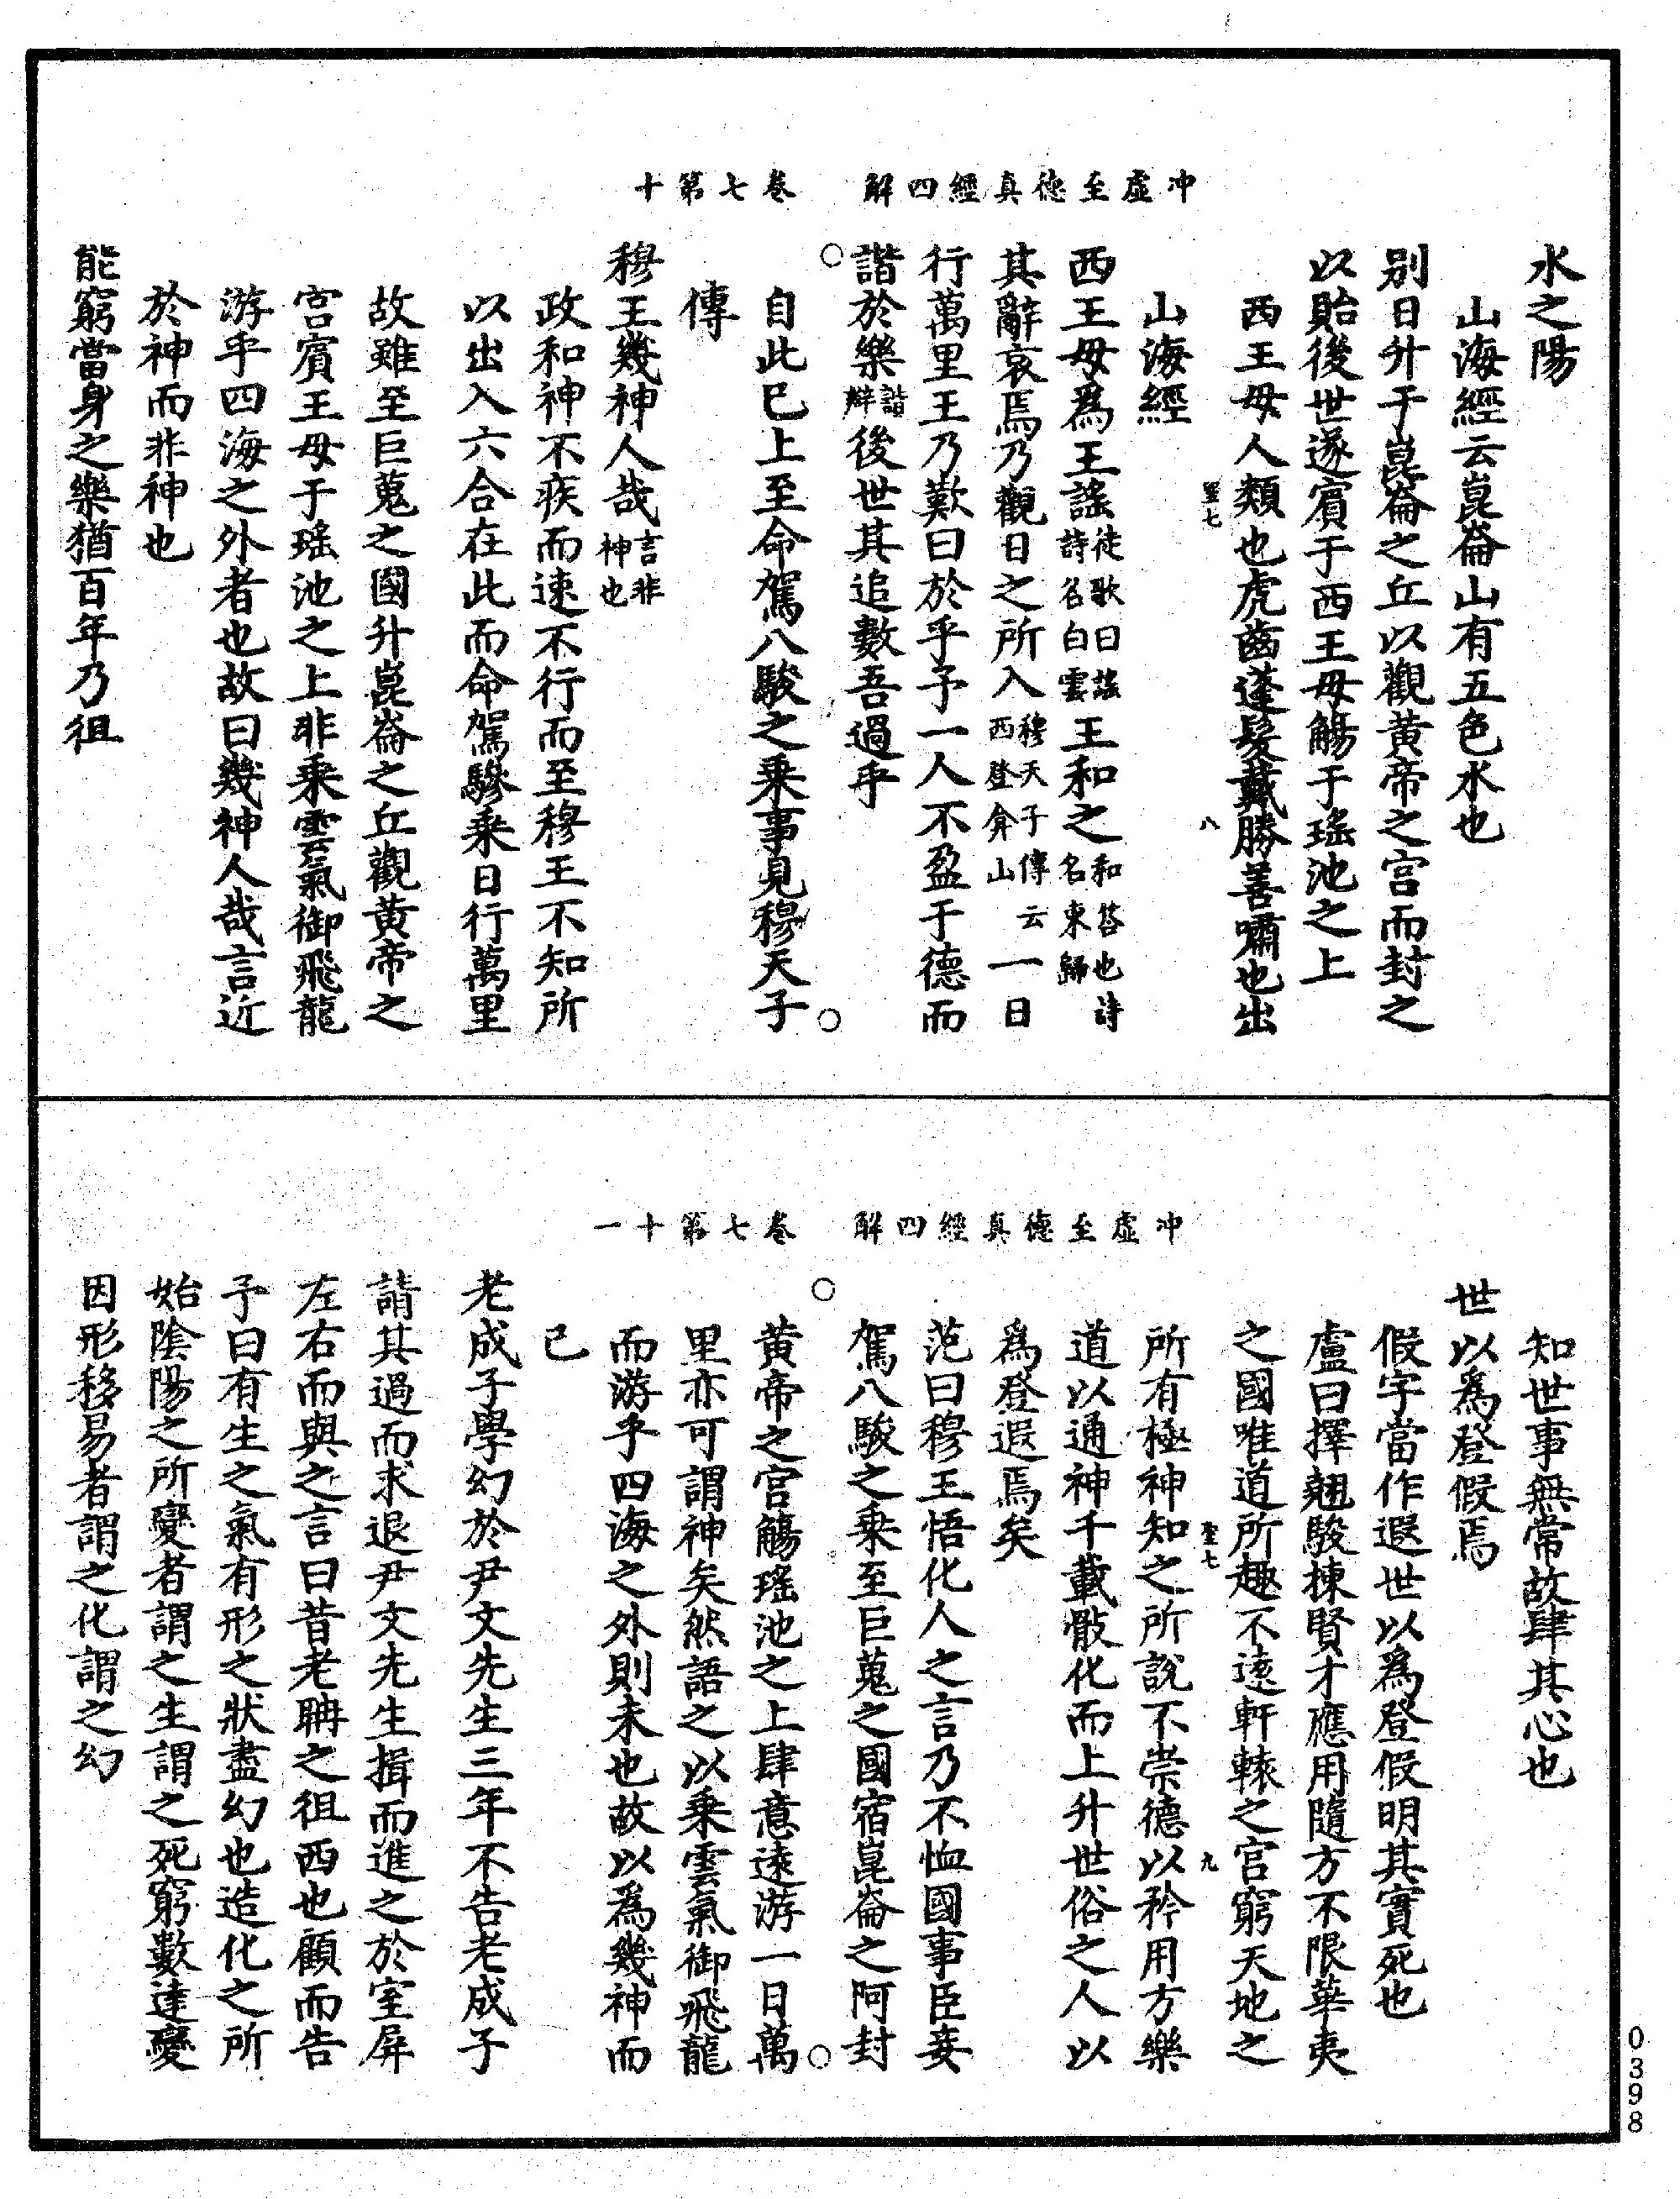 冲虛至德真經四解　卷七第十
水之陽
山海經云崑崙山有五色水也
別日升于崑崙之丘以觀黃帝之宮而封之
以貽後世遂賓于西王母觴于瑤池之上
西王母人類也虎齒蓬髮戴勝善嘯也出
山海經
西王母爲王謠徒歌曰謠詩名白雲王和之和答也詩名東歸
其辭哀焉乃觀日之所入穆天子傳云西登弇山一日
行萬里王乃歎曰於乎予一人不盈于德而
諧於樂諧辯後世其追數吾過乎
○自此已上至命駕八駿之乘事見穆天子○
傳
穆王幾神人哉言非神也
政和神不疾而速不行而至穆王不知所
以出入六合在此而命駕驂乘日行萬里
故雖至巨蒐之國升崑崙之丘觀黃帝之
宮賓王母于瑤池之上非乘雲氣御飛龍
游乎四海之外者也故曰幾神人哉言近
於神而非神也
能窮當身之樂猶百年乃徂
聖七　八
冲虛至德真經四解　卷七第十一
知世事無常故肆其心也
世以爲登假焉
假字當作遐世以爲登假明其實死也
盧曰擇翹駿揀賢才應用隨方不限華夷
之國唯道所趣不遠軒轅之宮窮天地之
所有極神知之所說不崇德以矜用方樂
道以通神千載骰化而上升世俗之人以
爲登遐焉矣
范曰穆王悟化人之言乃不恤國事臣妾
駕八駿之乘至巨蒐之國宿崑崙之阿封
○黃帝之宮觴瑤池之上肆意遠游一日萬○
里亦可謂神矣然語之以乘雲氣御飛龍
而游乎四海之外則未也故以爲幾神而
已
老成子學幻於尹文先生三年不告老成子
請其過而求退尹文先生揖而進之於室屏
左右而與之言曰昔老聃之徂西也顧而告
予曰有生之氣有形之狀盡幻也造化之所
始陰陽之所變者謂之生謂之死窮數達變
因形移易者謂之化謂之幻
聖七　九
0398